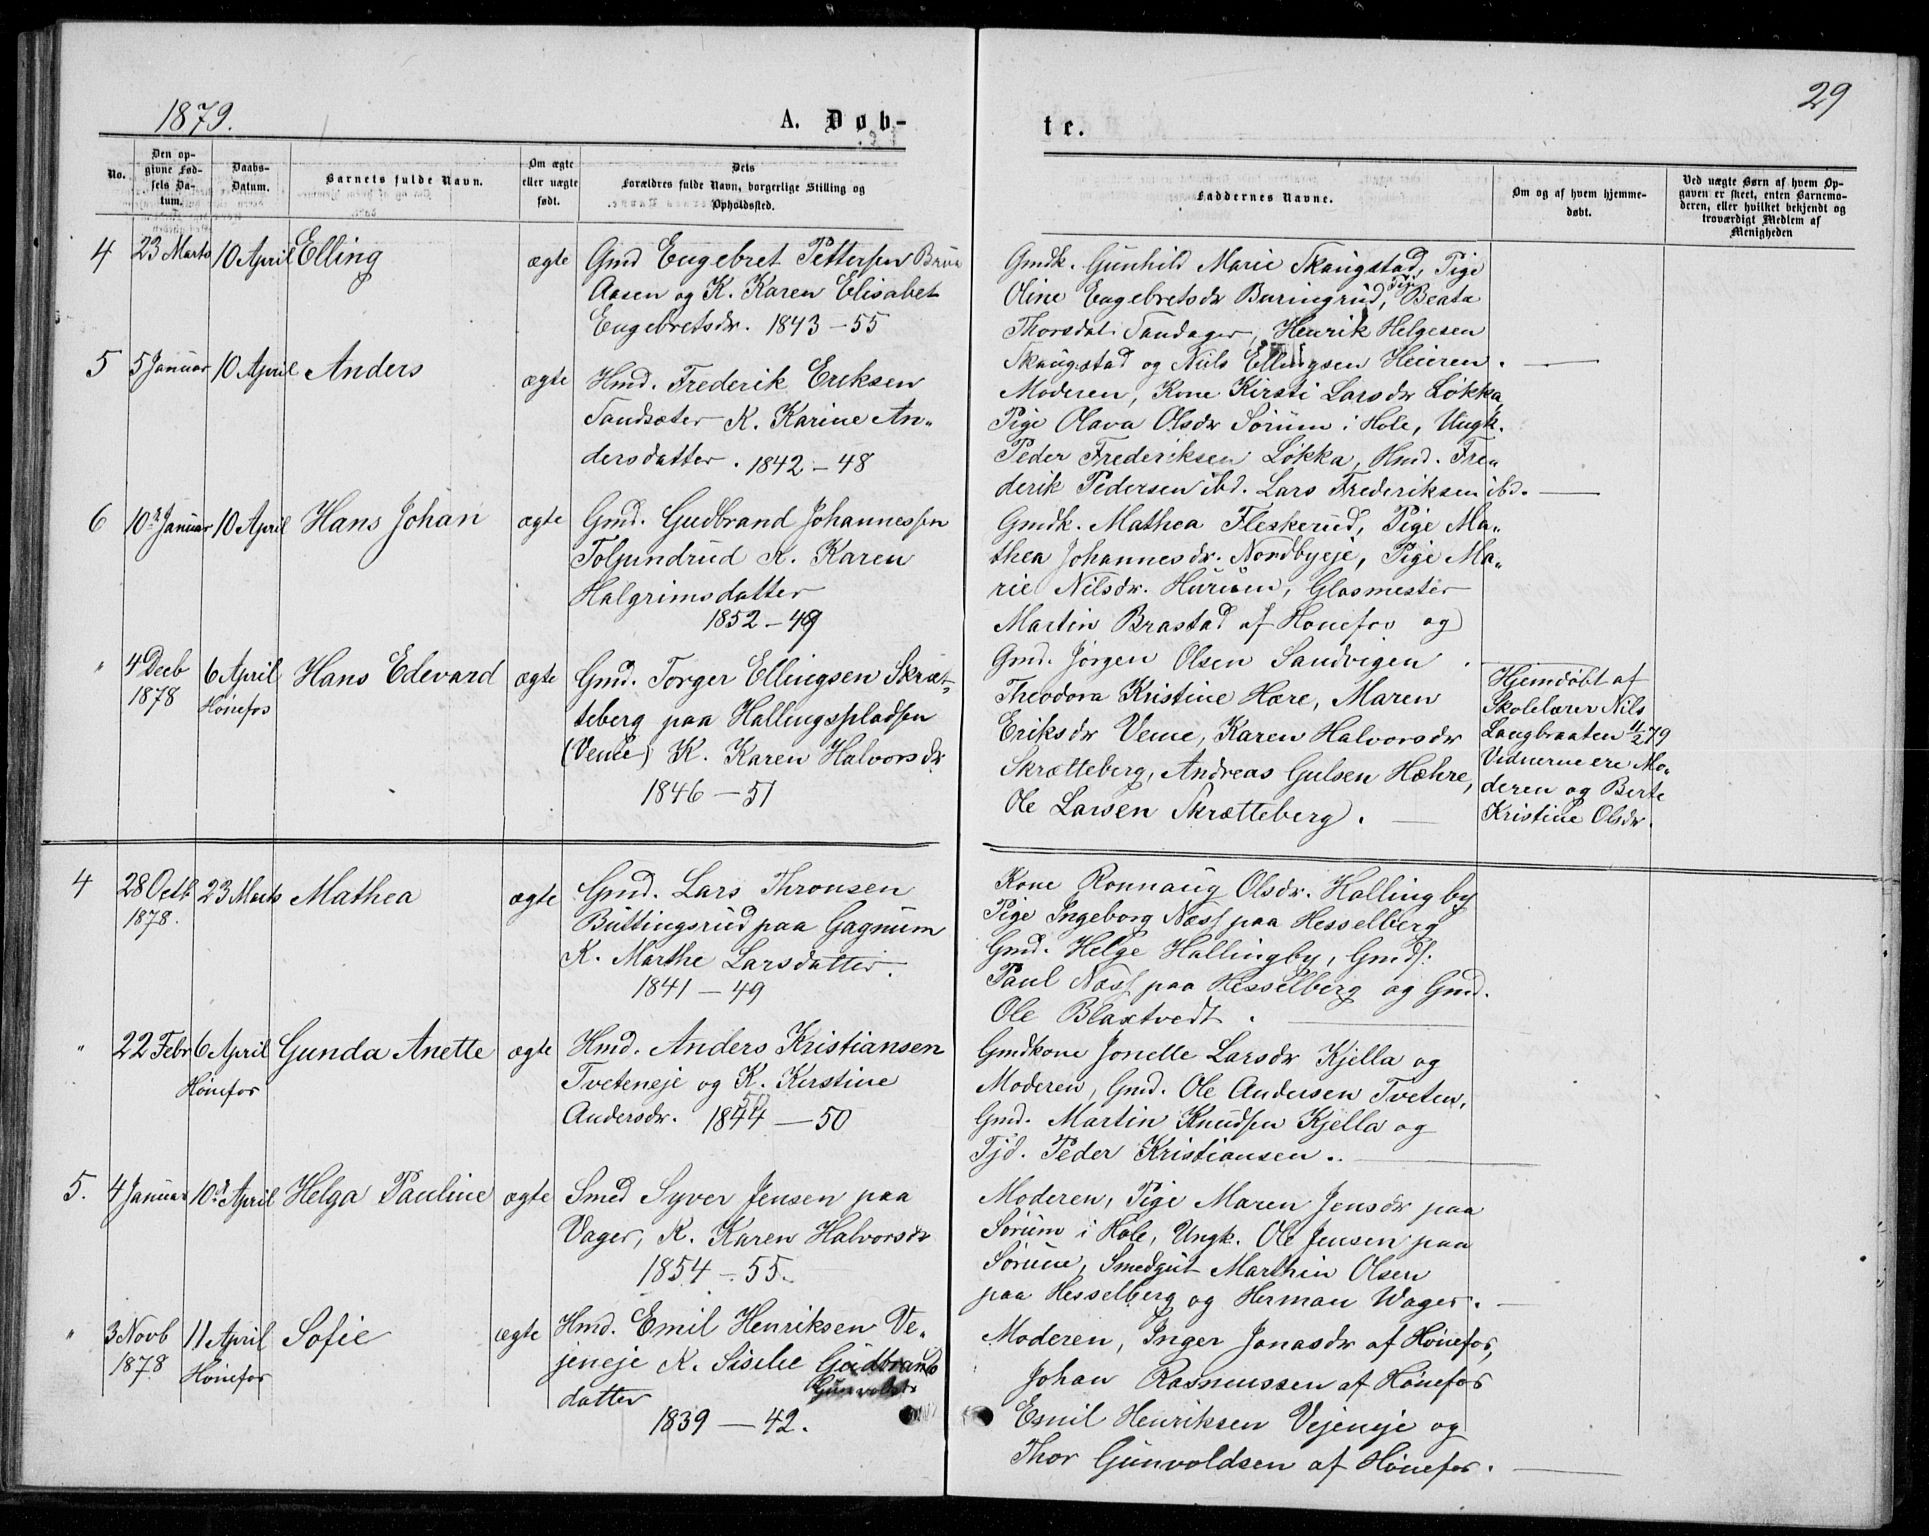 1879.
A. Døb-
te.
29
No.
Den op-
givne Fød-
sels Da-
tum.
Daabs-
Datum.
Barnets fulde Navn.
Om ægte
eller uægte
født.
Dets
Forældres fulde Navn, borgerlige Stilling og
Opholdssted.
Faddernes Navne.
Om og af hvem hjemme-
døbt.
Ved uægte Børn af hvem Op-
gaven er skeet, enten Barnemo-
deren, eller hvilket bekjendt og
troværdigt Medlem af
Menigheden
4 23 Marts 10 April Elling ægte Gmd Engebret Pettersen
Aasen og K. Karen Elisabet
Engebretsdr. 1843 - 55
Gmdk. Gunhild Marie Skaugstad, Pige
Oline Engebretsdr Buringrud, Pige Beata
Thorsdat. Tandager, Henrik Helgesen
Skaugstad og Niels Ellingsen Heieren.
5 5 Januar 10 April Anders ægte Hmd. Frederik Eriksen
Sandsæter K. Karine An-
dersdatter. 1842 - 48
Moderen, Kone Kirsti Larsdr Løkka,
Pige Olava Olsdr Sørum i Hole, Ungk.
Peder Frederiksen Løkka, Hmd. Fre-
derik Pedersen ibd. Lars Frederiksen ibd.
6 10de Januar 10 April Hans Johan ægte Gmd. Gudbrand Johannessen
Tolpundrud K. Karen
Halgrimsdatter
1852 - 49
Gmdk. Mathea Fleskerud, Pige Ma-
thea Johannesdr. Nordbyeje, Pige Ma-
rie Nilsdr. Hurum, Glasmester
Martin Brastad af Hønefos og
Gmd. Jørgen Olsen Sandvigen
" 4 Decb
1878
6 April
Hønefos
Hans Edevard ægte Gmd. Torger Ellingsen Skræt-
teberg paa Hallingspladsen
(Veme) K. Karen Halvorsdr
1846 - 51
Theodora Kristine Hære, Maren
Eriksdr Veme, Karen Halvorsdr
Skrætteberg, Andreas Gulsen Hæhre,
Ole Larsen Skrætteberg.
Hjemdøbt af
Skolelærer Nils
Langbraaten 11/2 79
Vidnerne ere Mo-
deren og Berte
Kristine Olsdr.
4 28 Octb
1878.
23 Marts Mathea ægte Gmd. Lars Thronsen
Buttingsrud paa Gagnum
K. Marthe Larsdatter.
1841 - 49
Kone Ronnaug Olsdr. Hallingby
Pige Ingeborg Næss paa Hesselberg
Gmd. Helge Hallingby, Gmds.
Paul Næss paa Hesselberg og Gmd.
Ole Blaxtvedt.
" 22 Febr 6 April
Hønefos
Gunda Anette ægte Hmd. Anders Kristiansen
Tveteneje og K. Kirstine
Andersdr. 1844 - 50
Gmdkone Jonette Larsdr Kjella og
Moderen, Gmd. Ole Andersen Tveten,
Gmd. Martin Knudsen Kjella og
Tjd. Peder Kristiansen.
5. 4 Januar 10de April Helga Pauline ægte Smed Syver Jensen paa
Vager, K. Karen Halvorsdr
1854 - 55.
Moderen, Pige Maren Jensdr paa
Sørum i Hole, Ungk. Ole Jensen paa
Sørum, Smedgut Marthin Olsen
paa Hesselberg og Herman Wager.
" 3 Novb
1878
11 April
Hønefos
Sofie ægte Hmd. Emil Henriksen Ve-
jeneje K. Siselie Gudbrands
Gunvolds
datter
1839 - 42.
Moderen, Inger Jonasdr af Hønefos,
Johan Rasmussen af Hønefos
Emil Henriksen Vejeneje og
Thor Gunvoldsen af Hønefos.